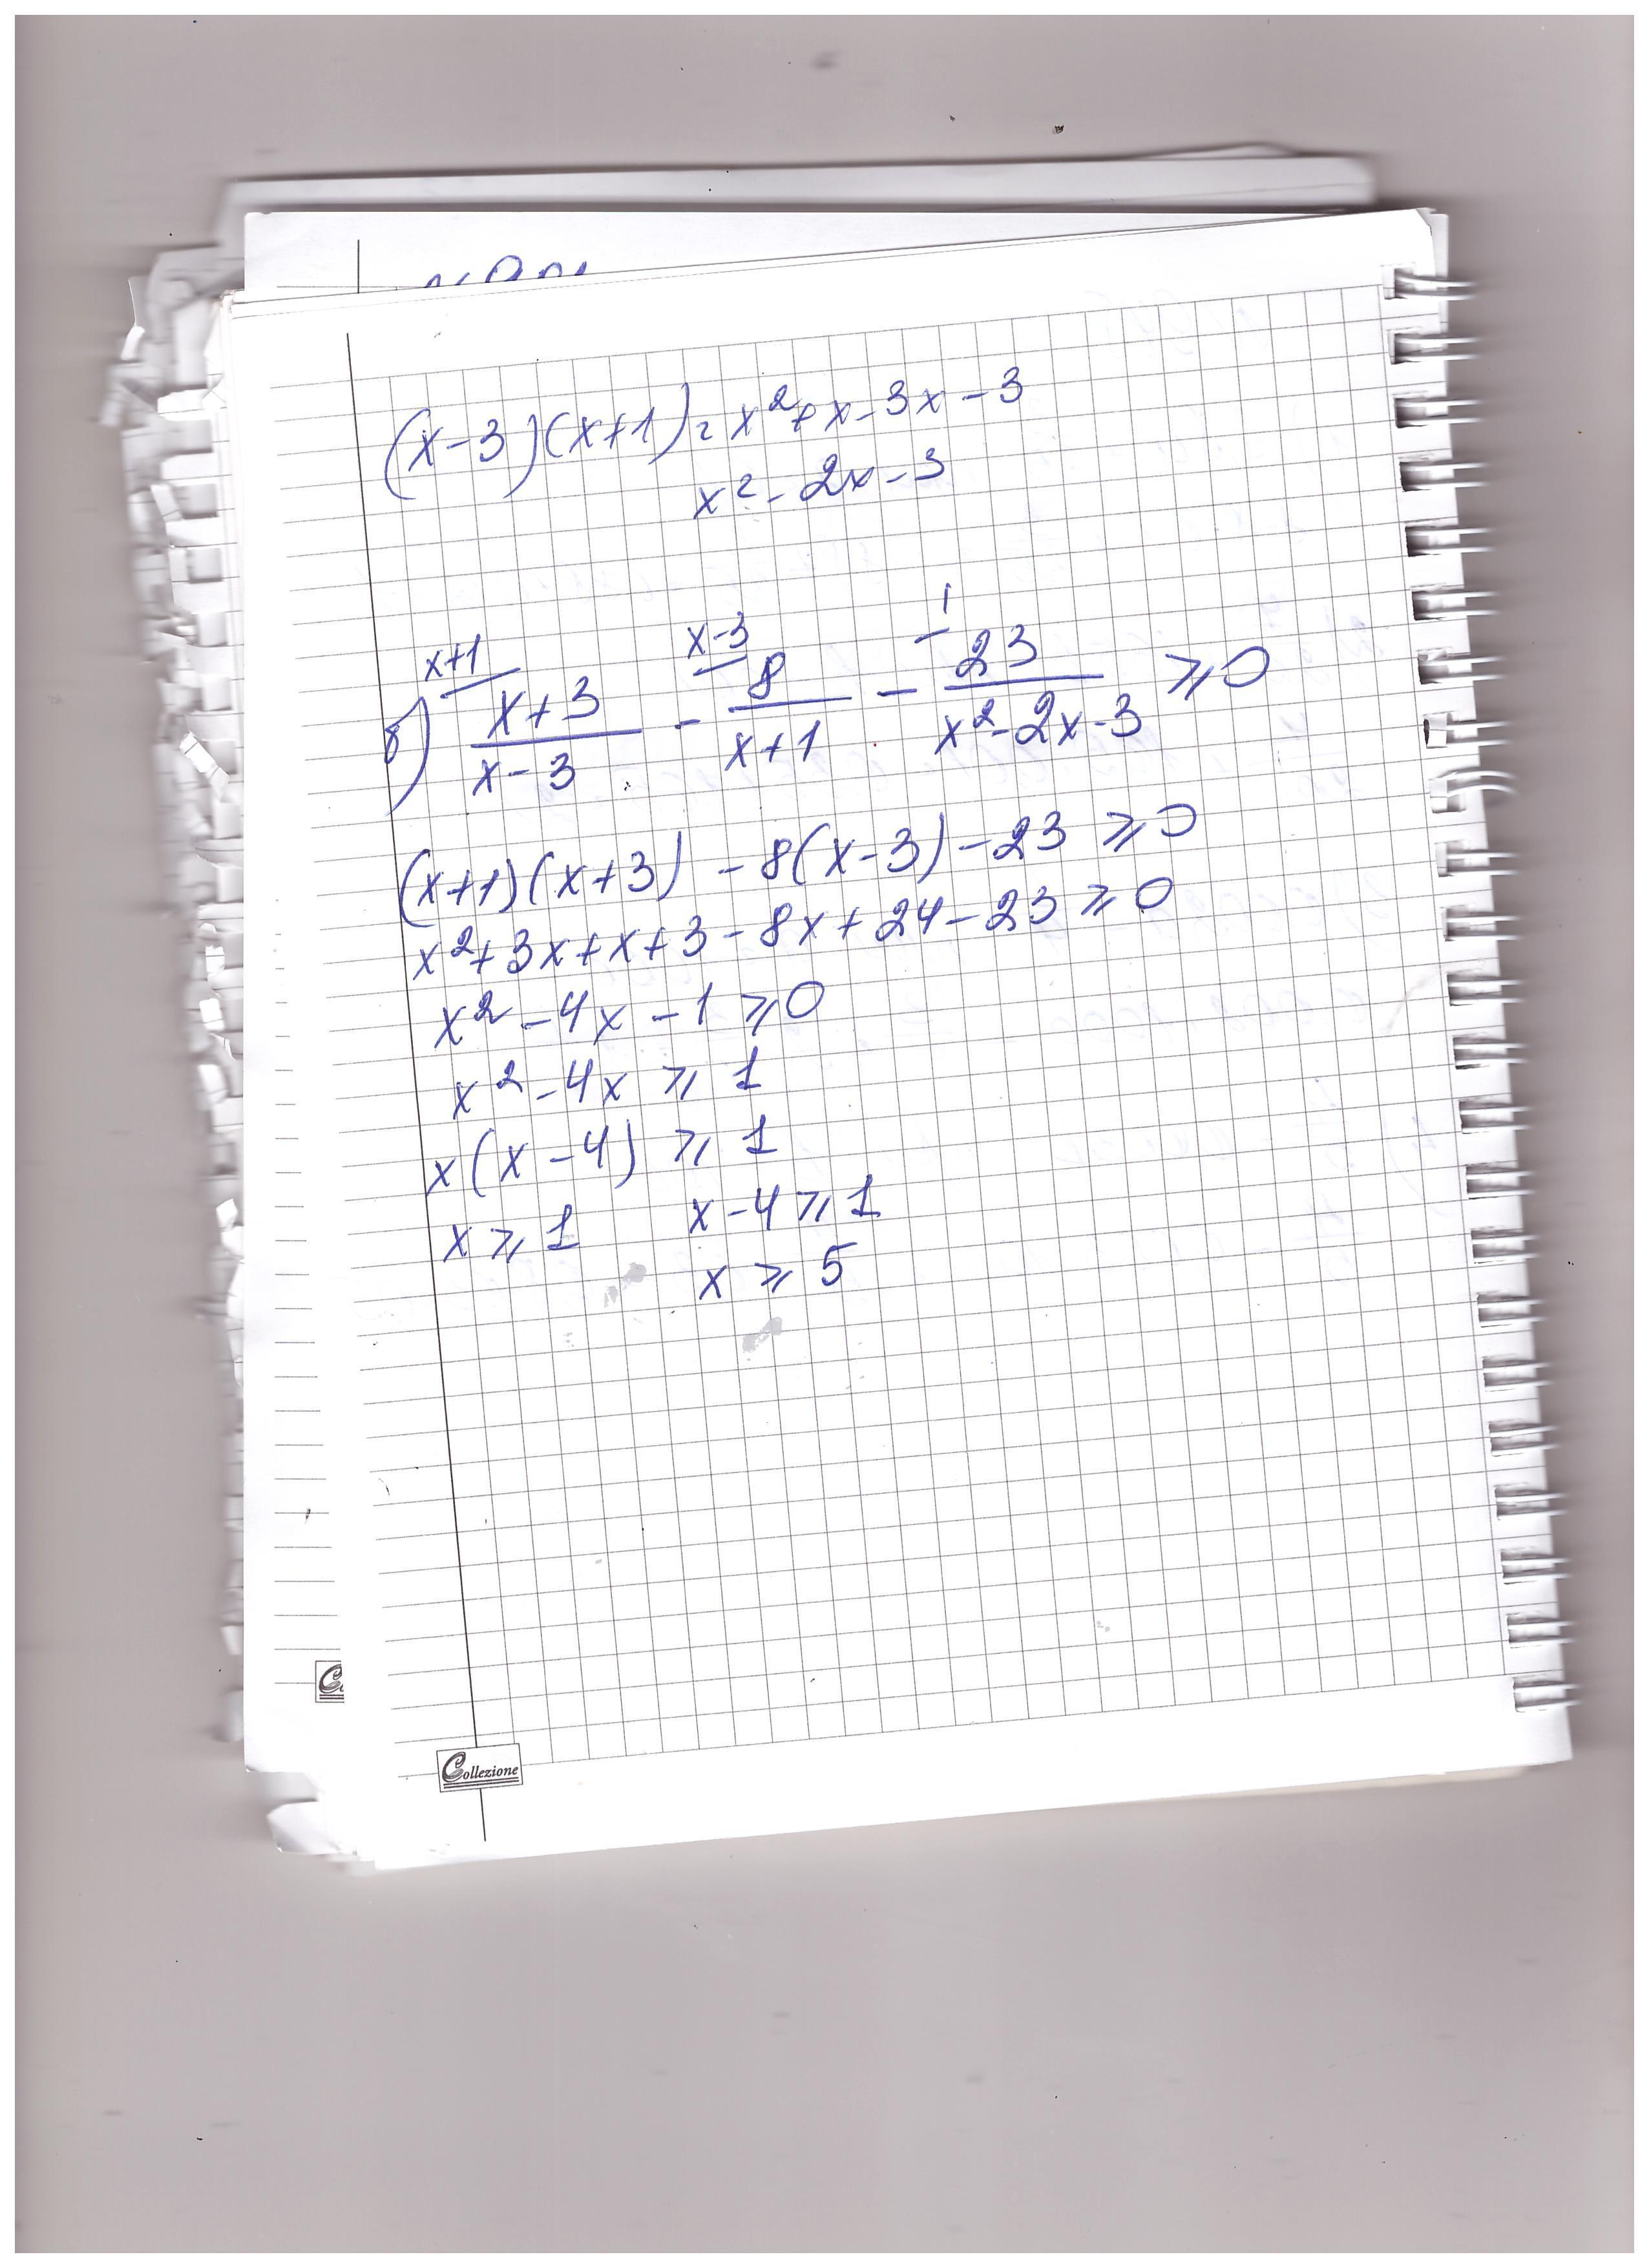 (x-3)(x+1)= x²+x-3x-3
x²-2x-3
x+1 x-3 1
б) x+3/x-3 - 8/x+1 - 23/x²-2x-3 ⩾0
(x+1)(x+3) -8(x-3)-23 ⩾0
x²+3x+x+3-8x+24-23⩾0
x²-4x-1⩾0
x²-4x ⩾ 1
x(x-4) ⩾ 1
x⩾1 x-4⩾1
x ⩾ 5
Collezione